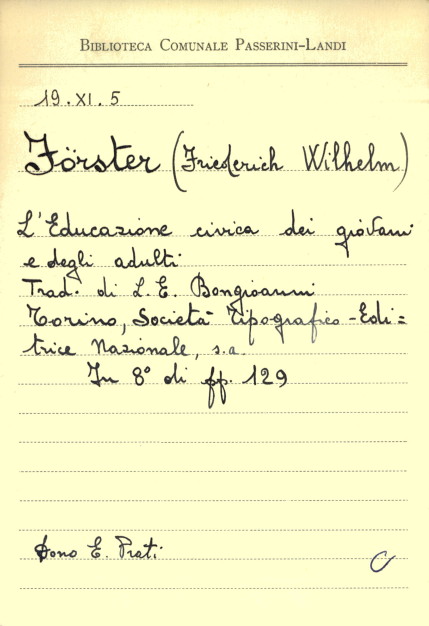 BIBLIOTECA COMUNALE PASSERINI-LANDI
19.XI.5
Förster (Friederich Wilhelm)
L'Educazione civica dei giovani
e degli adulti
Trad. di L. E. Bongioanni
Torino, Società Tipografico-Edi=
trice Nazionale, s.a.
In 8° di pp. 129
Dono E. Prati
C